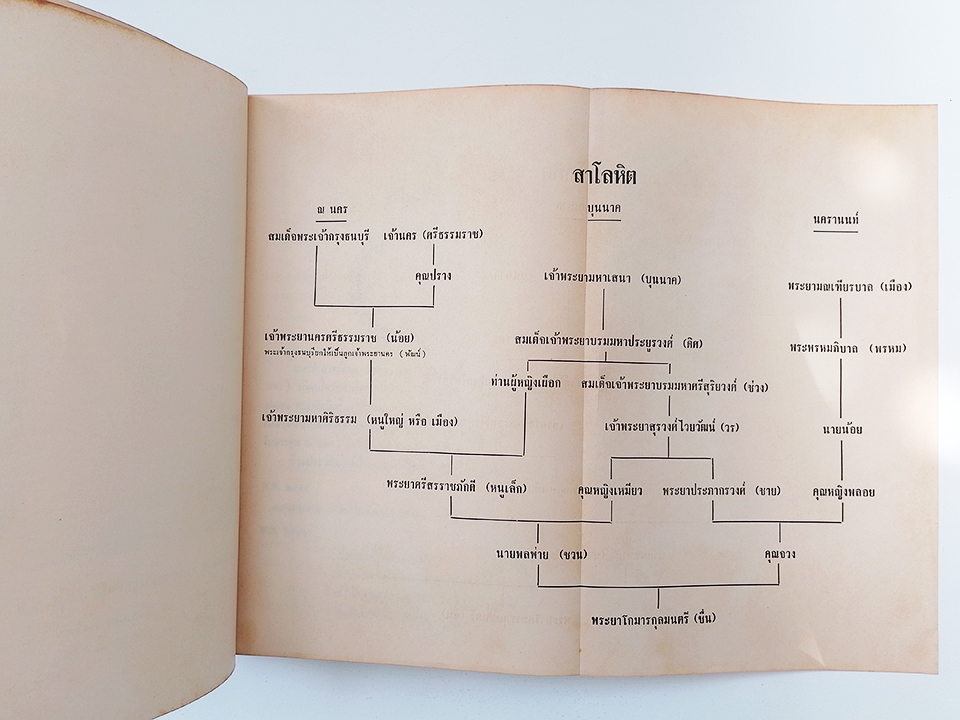 สาโลหิต
ณ นคร
บุนนาค
นครานนท์
สมเด็จพระเจ้ากรุงธนบุรี เจ้านคร (ศรีธรรมราช)
คุณปราง
เจ้าพระยามหาเสนา (บุนนาค)
พระยามณเฑียรบาล (เมือง)
เจ้าพระยานครศรีธรรมราช (น้อย)
พระเจ้ากรุงธนบุรียกให้เป็นลูกเจ้าพระยานคร (พัฒน์)
สมเด็จเจ้าพระยาบรมมหาประยูรวงศ์ (ดิศ)
พระพรหมภิบาล (พรหม)
ท่านผู้หญิงเผือก สมเด็จเจ้าพระยาบรมมหาศรีสุริยวงศ์ (ช่วง)
เจ้าพระยามหาศิริธรรม (หนูใหญ่ หรือ เมือง)
เจ้าพระยาสุรวงศ์ไวยวัฒน์ (วร)
นายน้อย
พระยาศรีสรราชภักดี (หนูเล็ก)
คุณหญิงเหมียว พระยาประภากรวงศ์ (ชาย)
คุณหญิงพลอย
นายพลพ่าย (ชวน)
คุณจวง
พระยาโกมารกุลมนตรี (ชื่น)